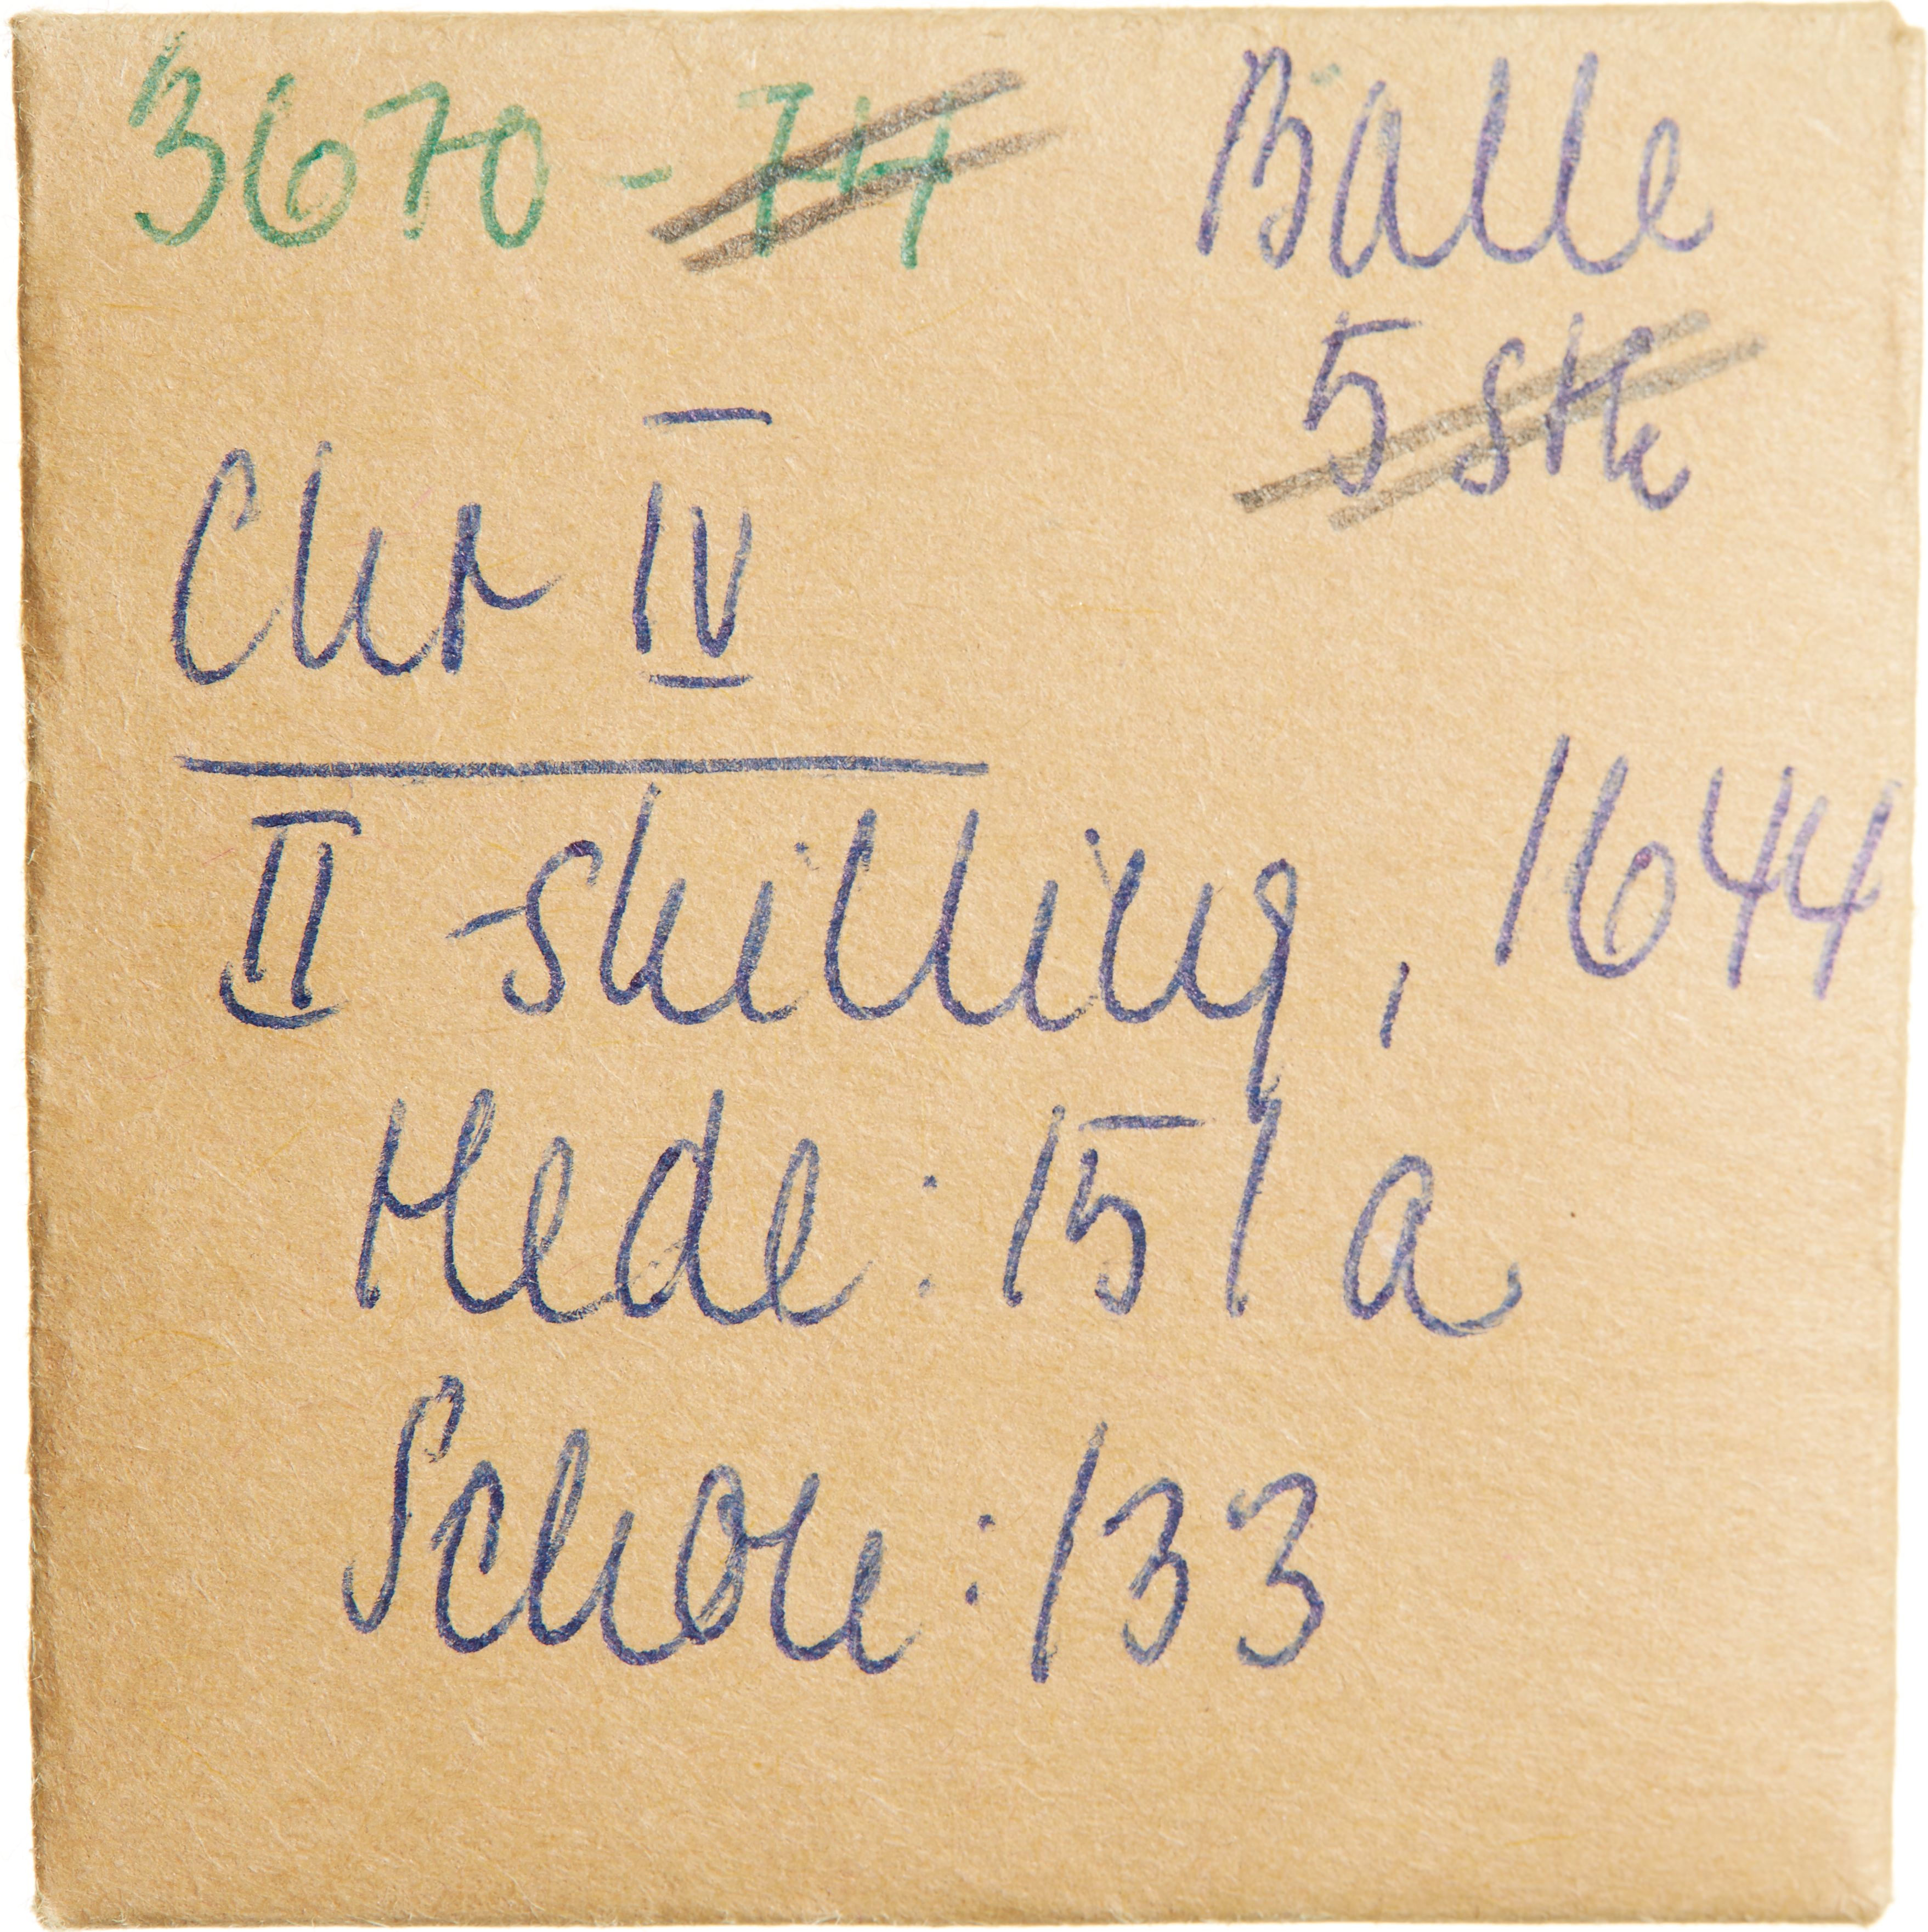 3670 - 744 Balle
5 stk
Chr IV
II skilling, 1644
Hede : 151 a
Schou : 133